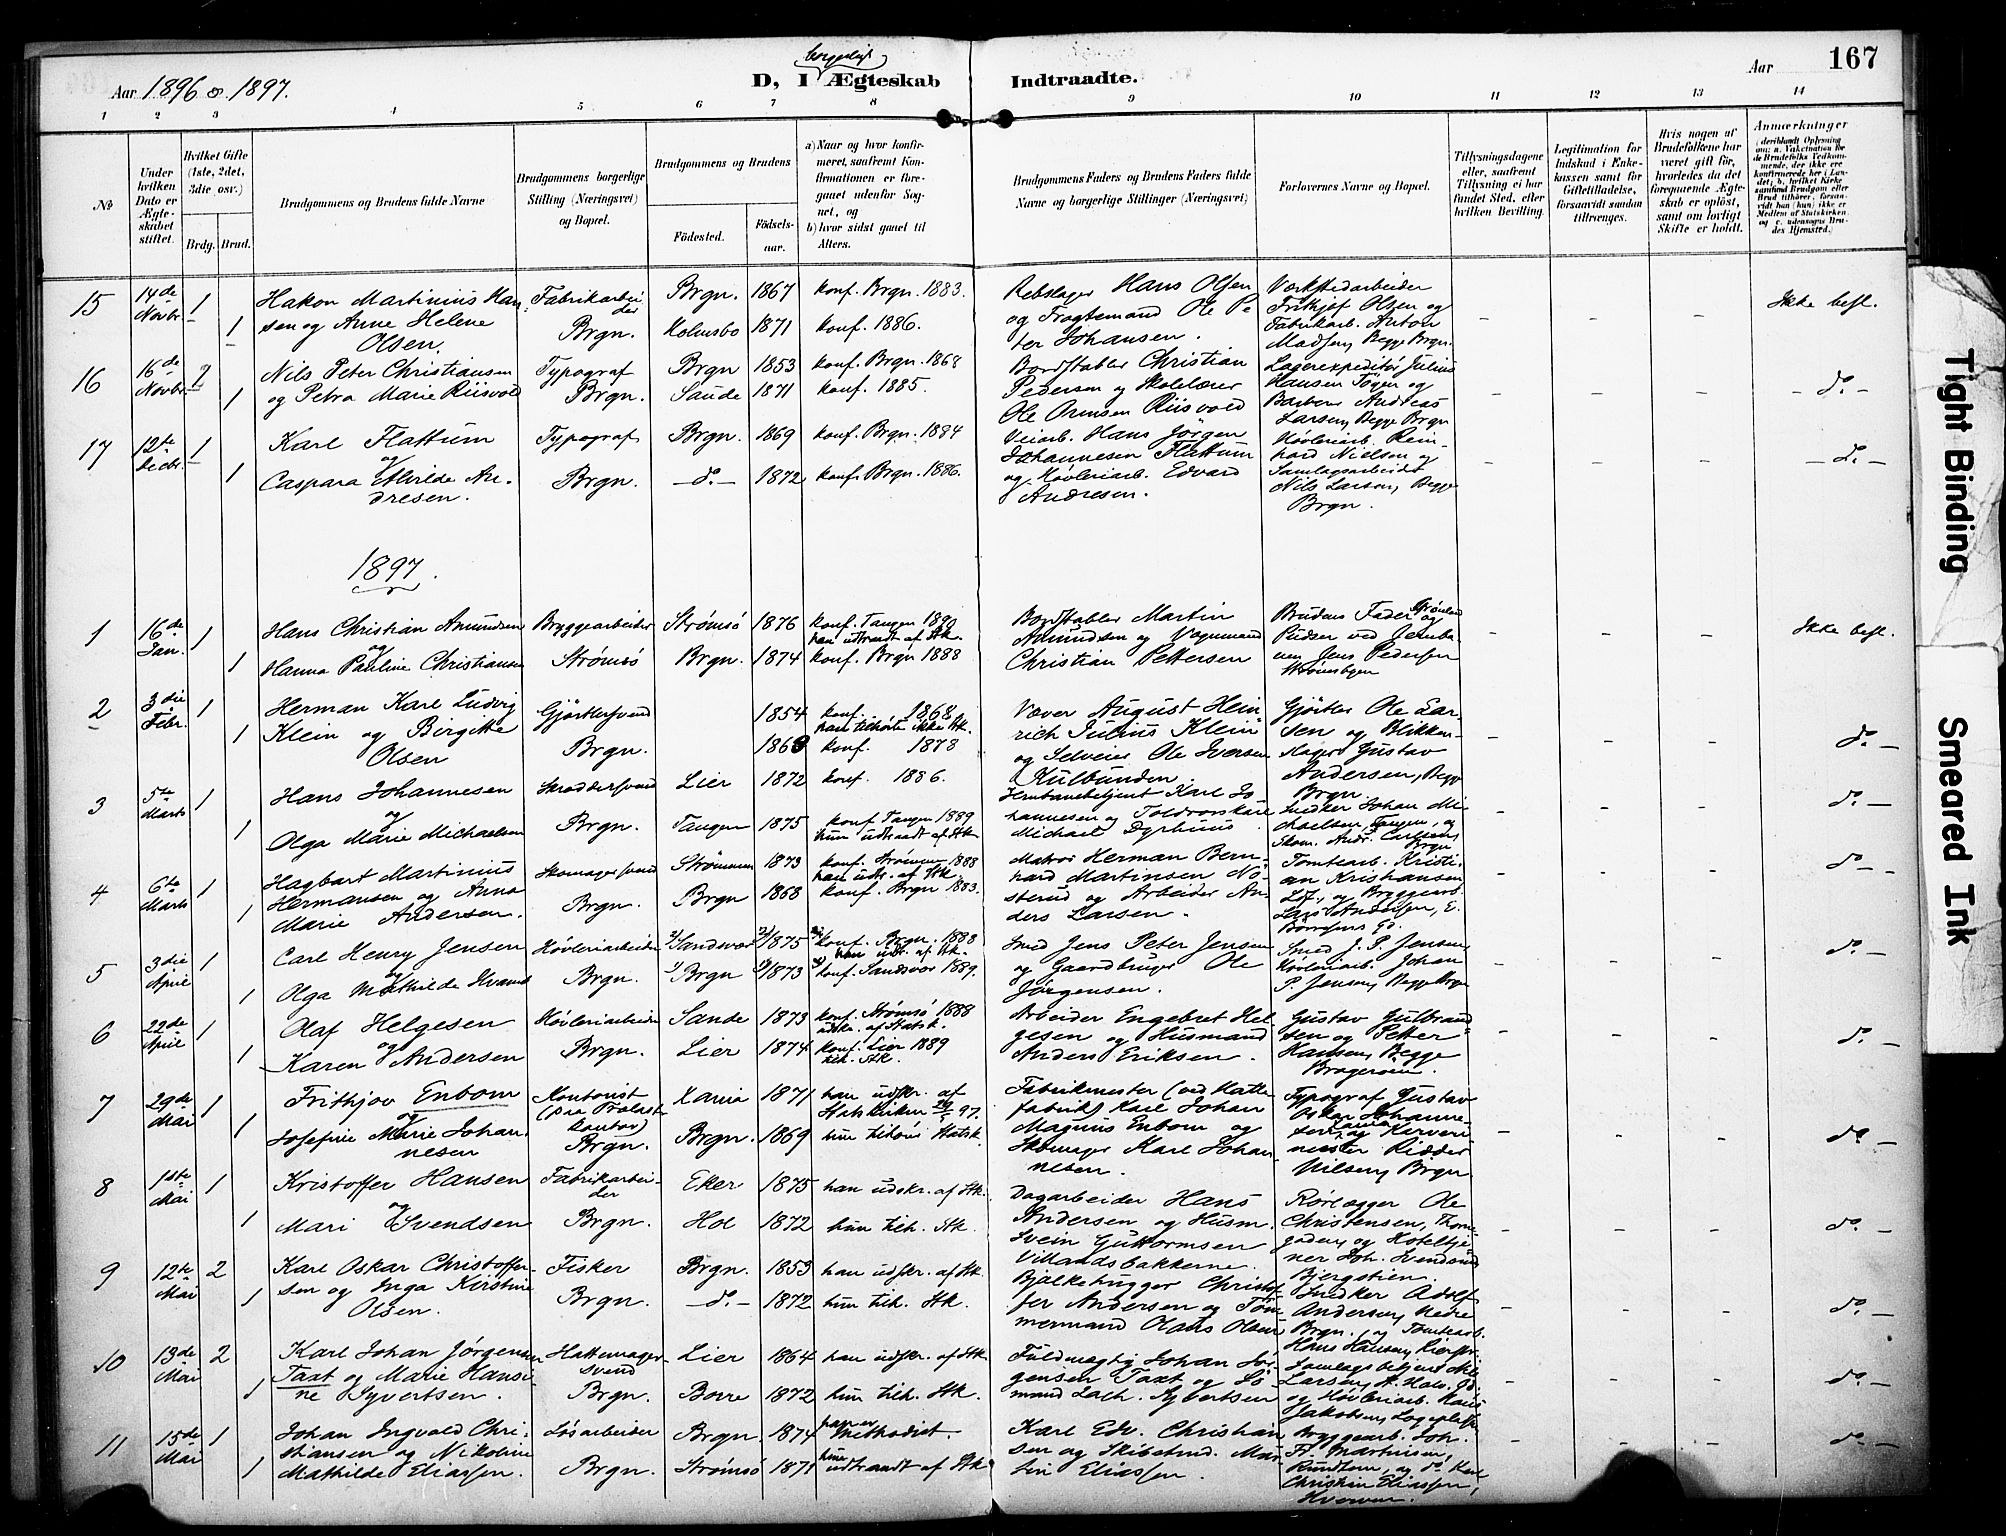 167
Aar 1896 & 1897.
borgerligt
D, I Ægteskab Indtraadte.
Aar
1 2 3 4 5 6 7 8 9 10 11 12 13 14
№
Under hvilken Dato er Ægteskabet stiftet.
Hvilket Gifte (1ste, 2det, 3die osv.)
Brdg. Brud.
Brudgommens og Brudens fulde Navne
Brudgommens borgerlige Stilling (Næringsvei) og Bopæl.
Brudgommens og Brudens
Fødested. Fødsels-aar.
a) Naar og hvor konfirmeret, saafremt Konfirmationen er foregaaet udenfor Sognet, og
b) hvor sidst gaaet til Alters.
Brudgommens Faders og Brudens Faders fulde Navne og borgerlige Stillinger (Næringsvei)
Forlovernes Navne og Bopæl.
Tillysningsdagene eller, saafremt Tillysning ei har fundet Sted, efter hvilken Bevilling.
Legitimation for Indskud i Enkekassen samt for Giftetilladelse, forsaavidt saadan tiltrænges.
Hvis nogen af Brudefolkene har været gift før, hvorledes da det foregaaende Ægteskab er opløst, samt om lovligt Skifte er holdt.
Anmærkninger
15 14de Novbr. 1 1
Hakon Martinius Hansen og Anne Helene Olsen.
Fabrikarbeider Brgn.
Brgn. 1867 konf. Brgn. 1883.
Holmsbo 1871 konf. 1886.
Rebslager Hans Olsen og Fragtemand Ole Peter Johansen.
Værkstedarbeider Frithjof Olsen og Fabrikarb. Anton Madsen, Begge Brgn.
Ikke besl.
16 16de Novbr. 2 1
Nils Peter Christiansen og Petra Marie Riisvold
Typograf Brgn.
Brgn 1853 konf. Brgn. 1868
Saude 1871 konf. 1885.
Bordstabler Christian Pedersen og Skolelærer Ole Ormsen Riisvold
Lagerexpeditør Julius Hansen Tøgen og Barber Andreas Larsen, Begge Brgn
do.
17 12te Decbr. 1 1
Karl Flattum og Caspara Alvilde Andresen.
Typograf Brgn.
Brgn. 1869 konf. Brgn. 1884
do. 1872 konf. Brgn. 1886.
Veiarb. Hans Jörgen Johannesen Flattum og Høvleriarb. Edvard Andresen.
Høvleriarb. Reinhard Nielsen og Samlagsarbeider Nils Larsen, Begge Brgn.
do.
1897.
1 16de Jan. 1 1
Hans Christian Amundsen og Hanna Pauline Christiansen
Bryggearbeider Strömsö
Strömsö 1876 konf. Tangen 1890 han udtraadt af Stk.
Brgn. 1874 konf. Brgn 1888
Bordstabler Martin Amundsen og Vognmand Christian Pettersen
Brudens Fader Grönland og Pudser ved Jernbanen Jens Pedersen
Ikke besl.
2 3die Febr. 1 1
Herman Karl Ludvig Klein og Birgitte Olsen
Gjørtlersvend Brgn.
1854 konf. 1868 han tilhører ikke Stk.
1863 konf. 1878
Væver August Heinrich Julius Klein og Selveier Ole Iversen Kulbunden.
Gjörtler Ole Larsen og Blikkenslager Gustav Andersen, Begge Brgn.
do.
3 5te Marts 1 1
Hans Johannesen og Olga Marie Michaelsen
Skræddersvend Brgn.
Lier 1872 konf. 1886.
Tangen 1875 konf. Tangen 1889 hun udtraadt af Stk
Jernbanebetjent Karl Johannesen og Toldroerskarl Michael Dyrhuus.
Snedker Johan Michaelsen, Tangen, og Skom. Andr. Carlsen, Brgn
do.
4 6te Marts 1 1
Hagbart Martinius Hermansen og Anna Marie Andersen.
Skomagersvend Brgn.
Strömmen 1873 konf. Strömmen 1888 han udtr. af Stk.
Brgn 1868 konf. Brgn 1883.
Matros Herman Bernhard Martinsen Nøsterud og Arbeider Anders Larsen.
Tomtearb. Kristian Kristiansen Löf, og Bryggearb. Lars Andersen, E. Börresens Gd.
do
5 3die April 1 1
Carl Henry Jensen og Olga Mathilde Hvamb
Høvleriarbeider Brgn.
Sandsvær 1875 konf. Brgn. 1888 han udtr. af Stk.
Brgn 1873 konf. Sandsvær 1889.
Smed Jens Peter Jensen og Gaardbruger Ole Jørgensen.
Smed J. P. Jensen, Høvleriarb. Johan P. Jensen, Begge Brgn
do.
6 22de April 1 1
Olaf Helgesen og Karen Andersen
Høvleriarbeider Brgn.
Sande 1873 konf. Strømsö 1888 udtr. af Statsk.
Lier 1874 konf. Lier 1889 tilh. Stk.
Arbeider Engebret Helgesen og Husmand Anders Eriksen.
Gustav Gulbrandsen og Petter Hansen, Begge Bragerøen.
do.
7 29de Mai 1 1
Frithjov Enbom og Josefine Marie Johannesen
Kontorist Brgn.
Xania 1871 han udskr. af Statskirken 97.
Brgn. 1869 hun tilhører Statsk.
Fabrikmester (ved Hattefabrik) Karl Johan Magnus Enbom og Skomager Karl Johannesen.
Typograf Gustav Oskar Johannesen, og Nilsen, Brgn
do
8 1ste Mai 1 1
Kristoffer Hansen og Mari Svendsen
Fabrikarbeider Brgn.
Eker 1875 han udskr. af Stk.
Hol 1872 hun tilh. Stk.
Dagarbeider Hans Andersen og Husm. Svein Guttormsen Villandsbakkerne.
Rørlægger Ole Christensen, og Bjergstien.
do.
9 12te Mai 2 1
Karl Oskar Christoffersen og Inga Kirstine Olsen.
Fisker Brgn.
Brgn. 1853 han udskr. af Stk
do. 1872 hun tilh. Stk.
Bjælkehugger Christoffer Andersen og Tømmermand Olaus Olsen
Snedker Adolf Andersen, Nedre Brgn. og Tomtearb. Hans Hansen,
do
10 13de Mai 2 1
Karl Johan Jørgensen Taxt og Marie Hansine Syvertsen.
Hattemagersvend Brgn.
Lier 1864 han udskr. af Stk
Borre 1872 hun tilh. Stk.
Fuldmægtig Johan Jørgensen Taxt og Sømand Zach. Syvertsen
Samlagsbetjent Larsen, og Høvleriarb. Hans Jakobsen,
do.
11 15de Mai 1 1
Johan Ingvald Christiansen og Nikoline Mathilde Eliassen.
Løsarbeider Brgn.
Brgn. 1874 han er Methodist.
Strömsö 1871 hun udtraadt af Stk
Karl Edv. Christiansen og Skibstmd. Martin Eliassen.
Bryggearb. Joh. Fr. Martinsen, og do. Karl Christian Eliassen,
do.
Tight Binding
Smeared Ink